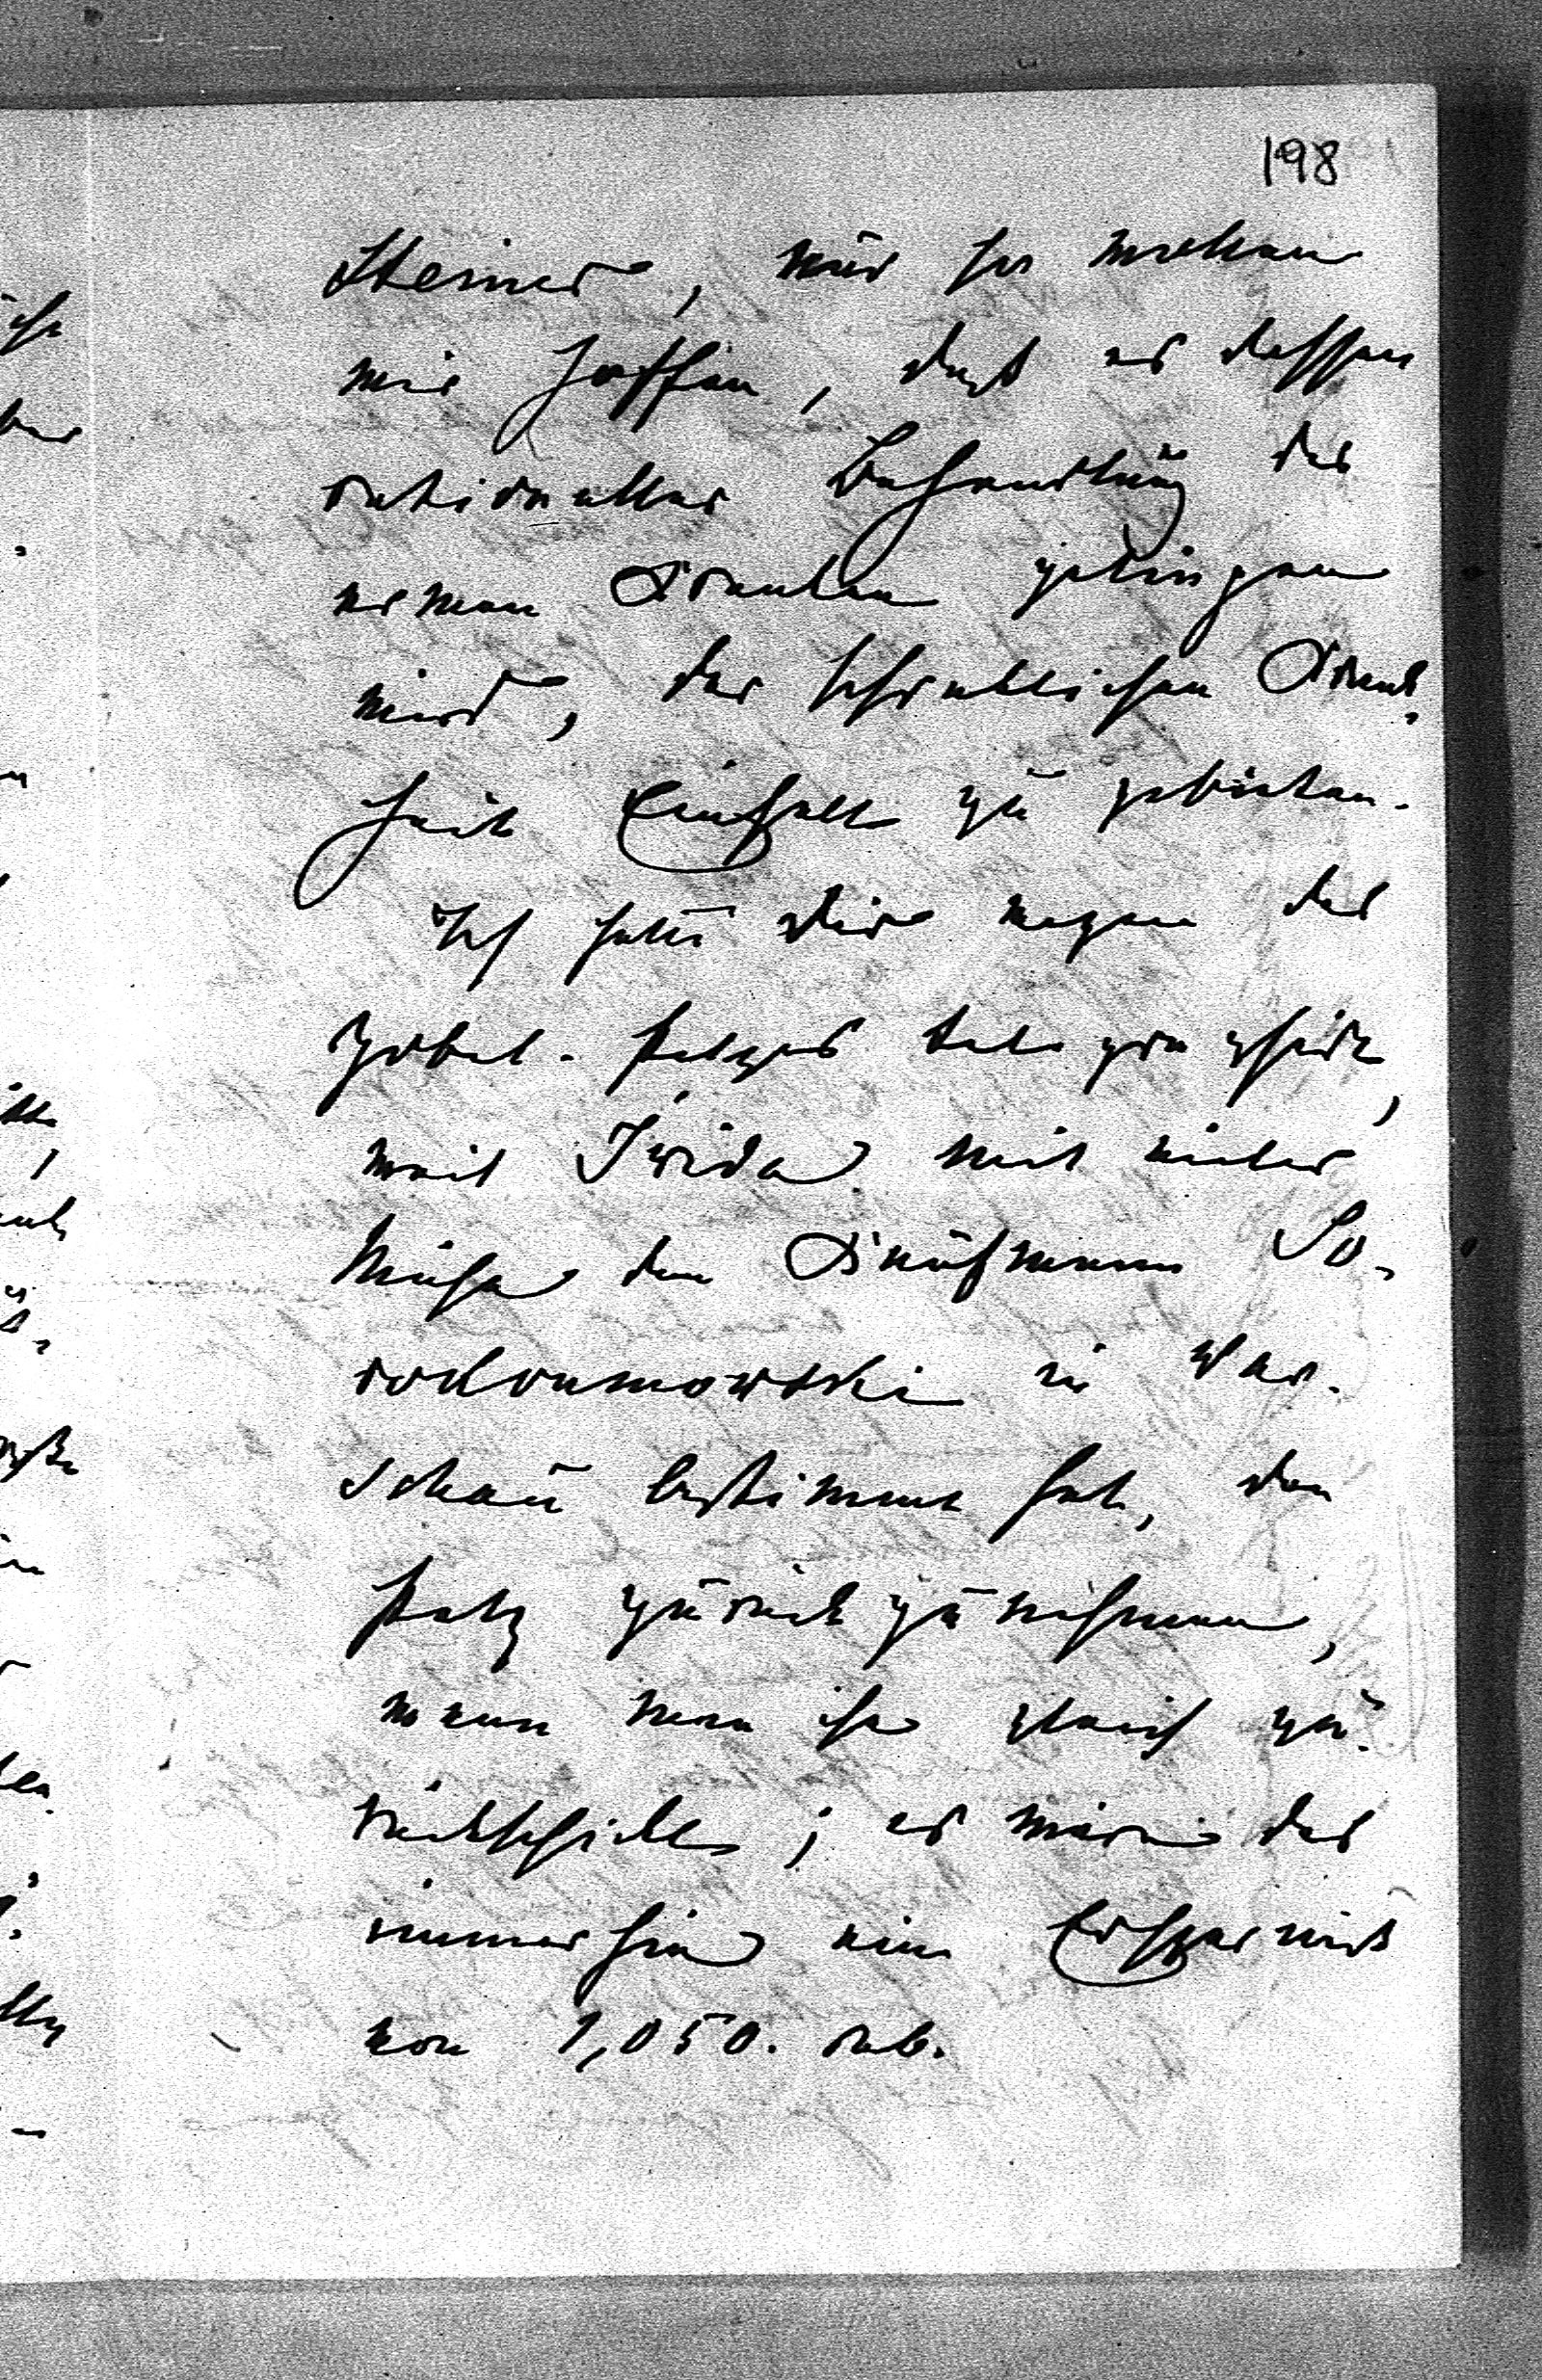 198
Steiner, nur so wollen
wir hoffen, daß es dessen
rationeller Behandlung der
armen Kranken gelingen
wird, der schrecklichen Krank-
heit Einhalt zu gebieten.
Ich hatte Dir wegen des
Zobel-Pelzes telegraphirt,
weil Frida mit vieler
Mühe den Kaufmann So-
rokoumowski in War-
schau bestimmt hat, den
Pelz zurückzunehmen,
wenn man ihn gleich zu-
rückschickt; es wäre das
immerhin eine Ersparniß
von 1,050. rub.